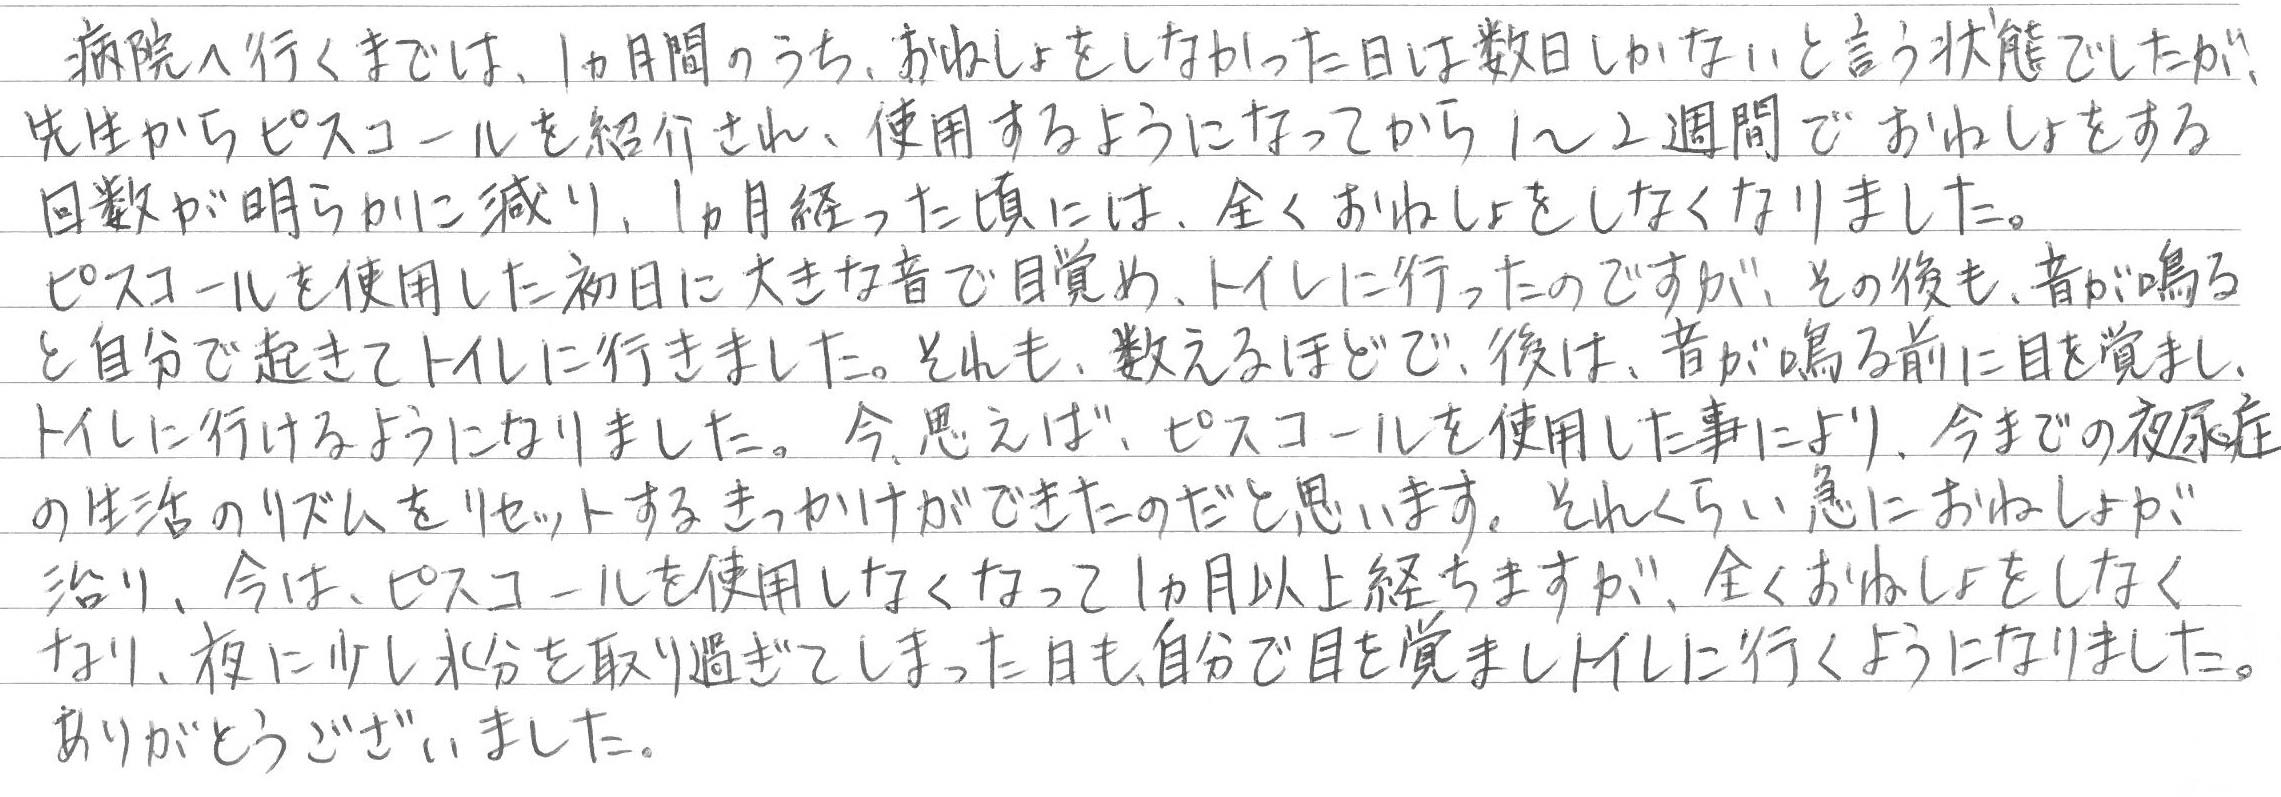 病院へ行くまでは、1ヵ月間のうち、おねしょをしなかった日は数日しかないと言う状態でしたが、
先生からピスコールを紹介され、使用するようになってから1〜2週間でおねしょをする
回数が明らかに減り、1ヵ月経った頃には、全くおねしょをしなくなりました。
ピスコールを使用した初日に大きな音で目覚め、トイレに行ったのですが、その後も、音が鳴る
と自分で起きてトイレに行きました。それも、数えるほどで、後は、音が鳴る前に目を覚まし、
トイレに行けるようになりました。今、思えば、ピスコールを使用した事により、今までの夜尿症
の生活のリズムをリセットするきっかけができたのだと思います。それくらい急におねしょが
治り、今は、ピスコールを使用しなくなって1ヵ月以上経ちますが、全くおねしょをしなく
なり、夜に少し水分を取り過ぎてしまった日も、自分で目を覚ましトイレに行くようになりました。
ありがとうございました。